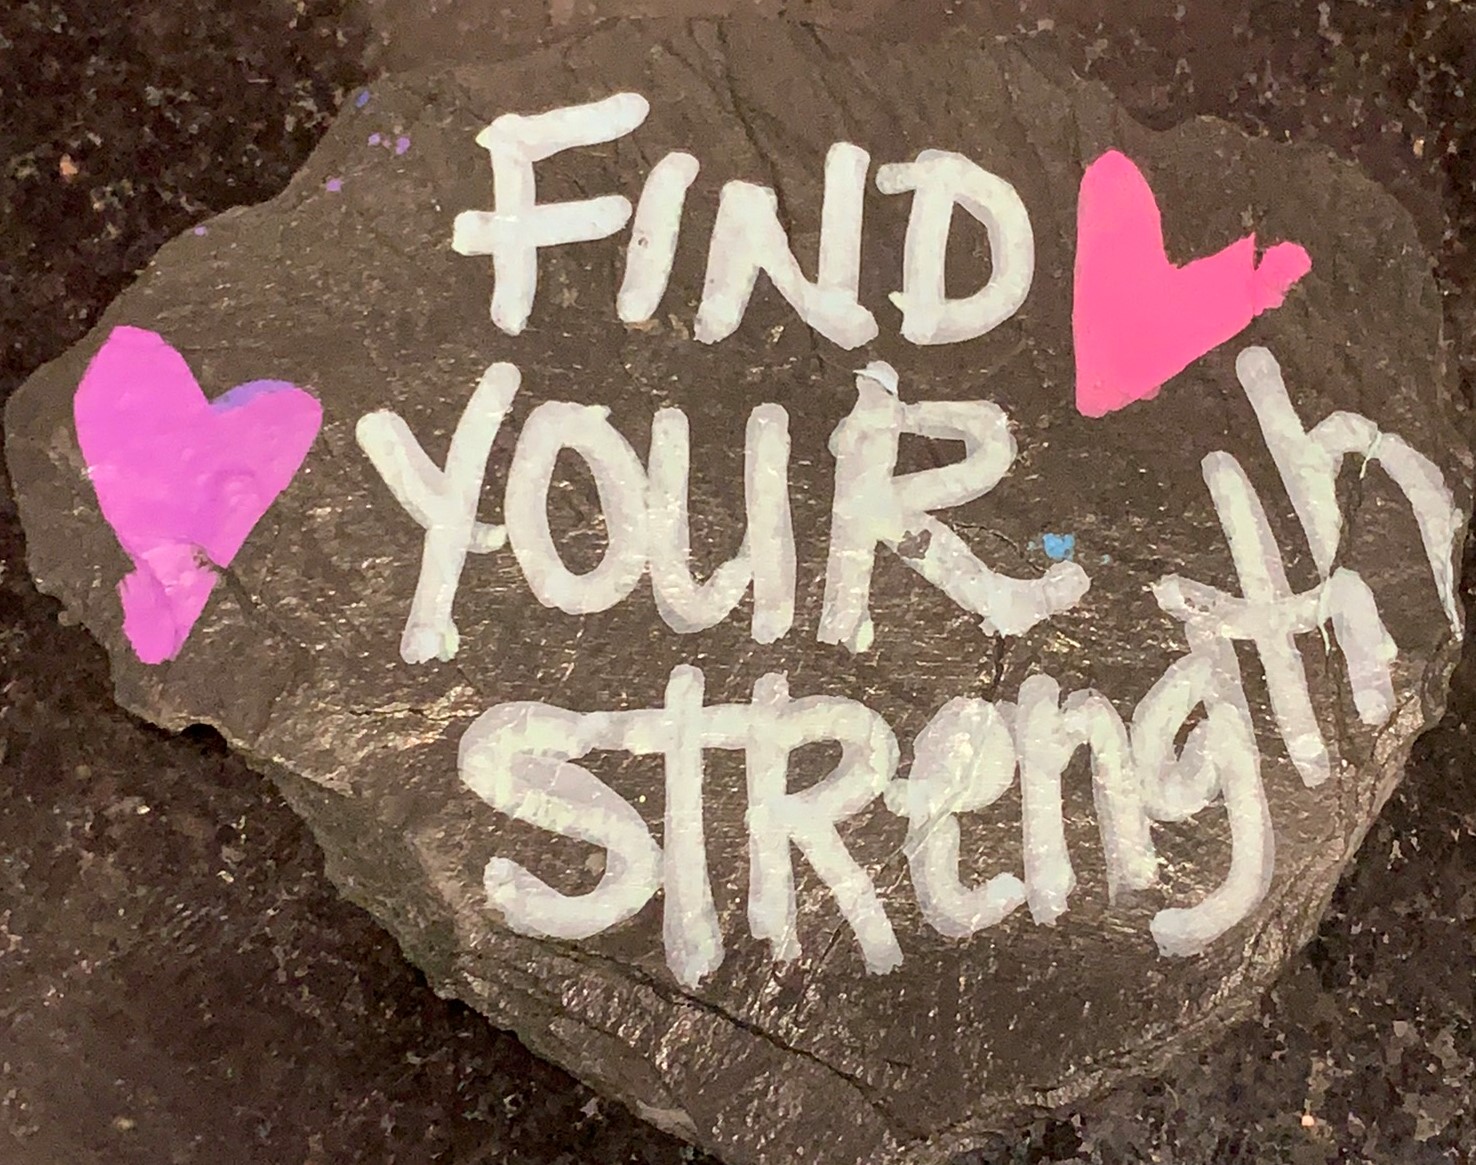 FIND
YOUR
STRength